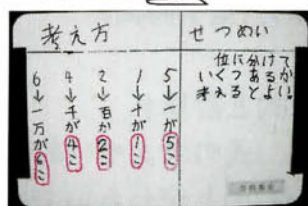 考え方
せつめい
位に分けて
いくつあるか
考えるとよい。
5→一が5こ
1→十が1こ
2→百が2こ
4→千が4こ
6→一万が6こ